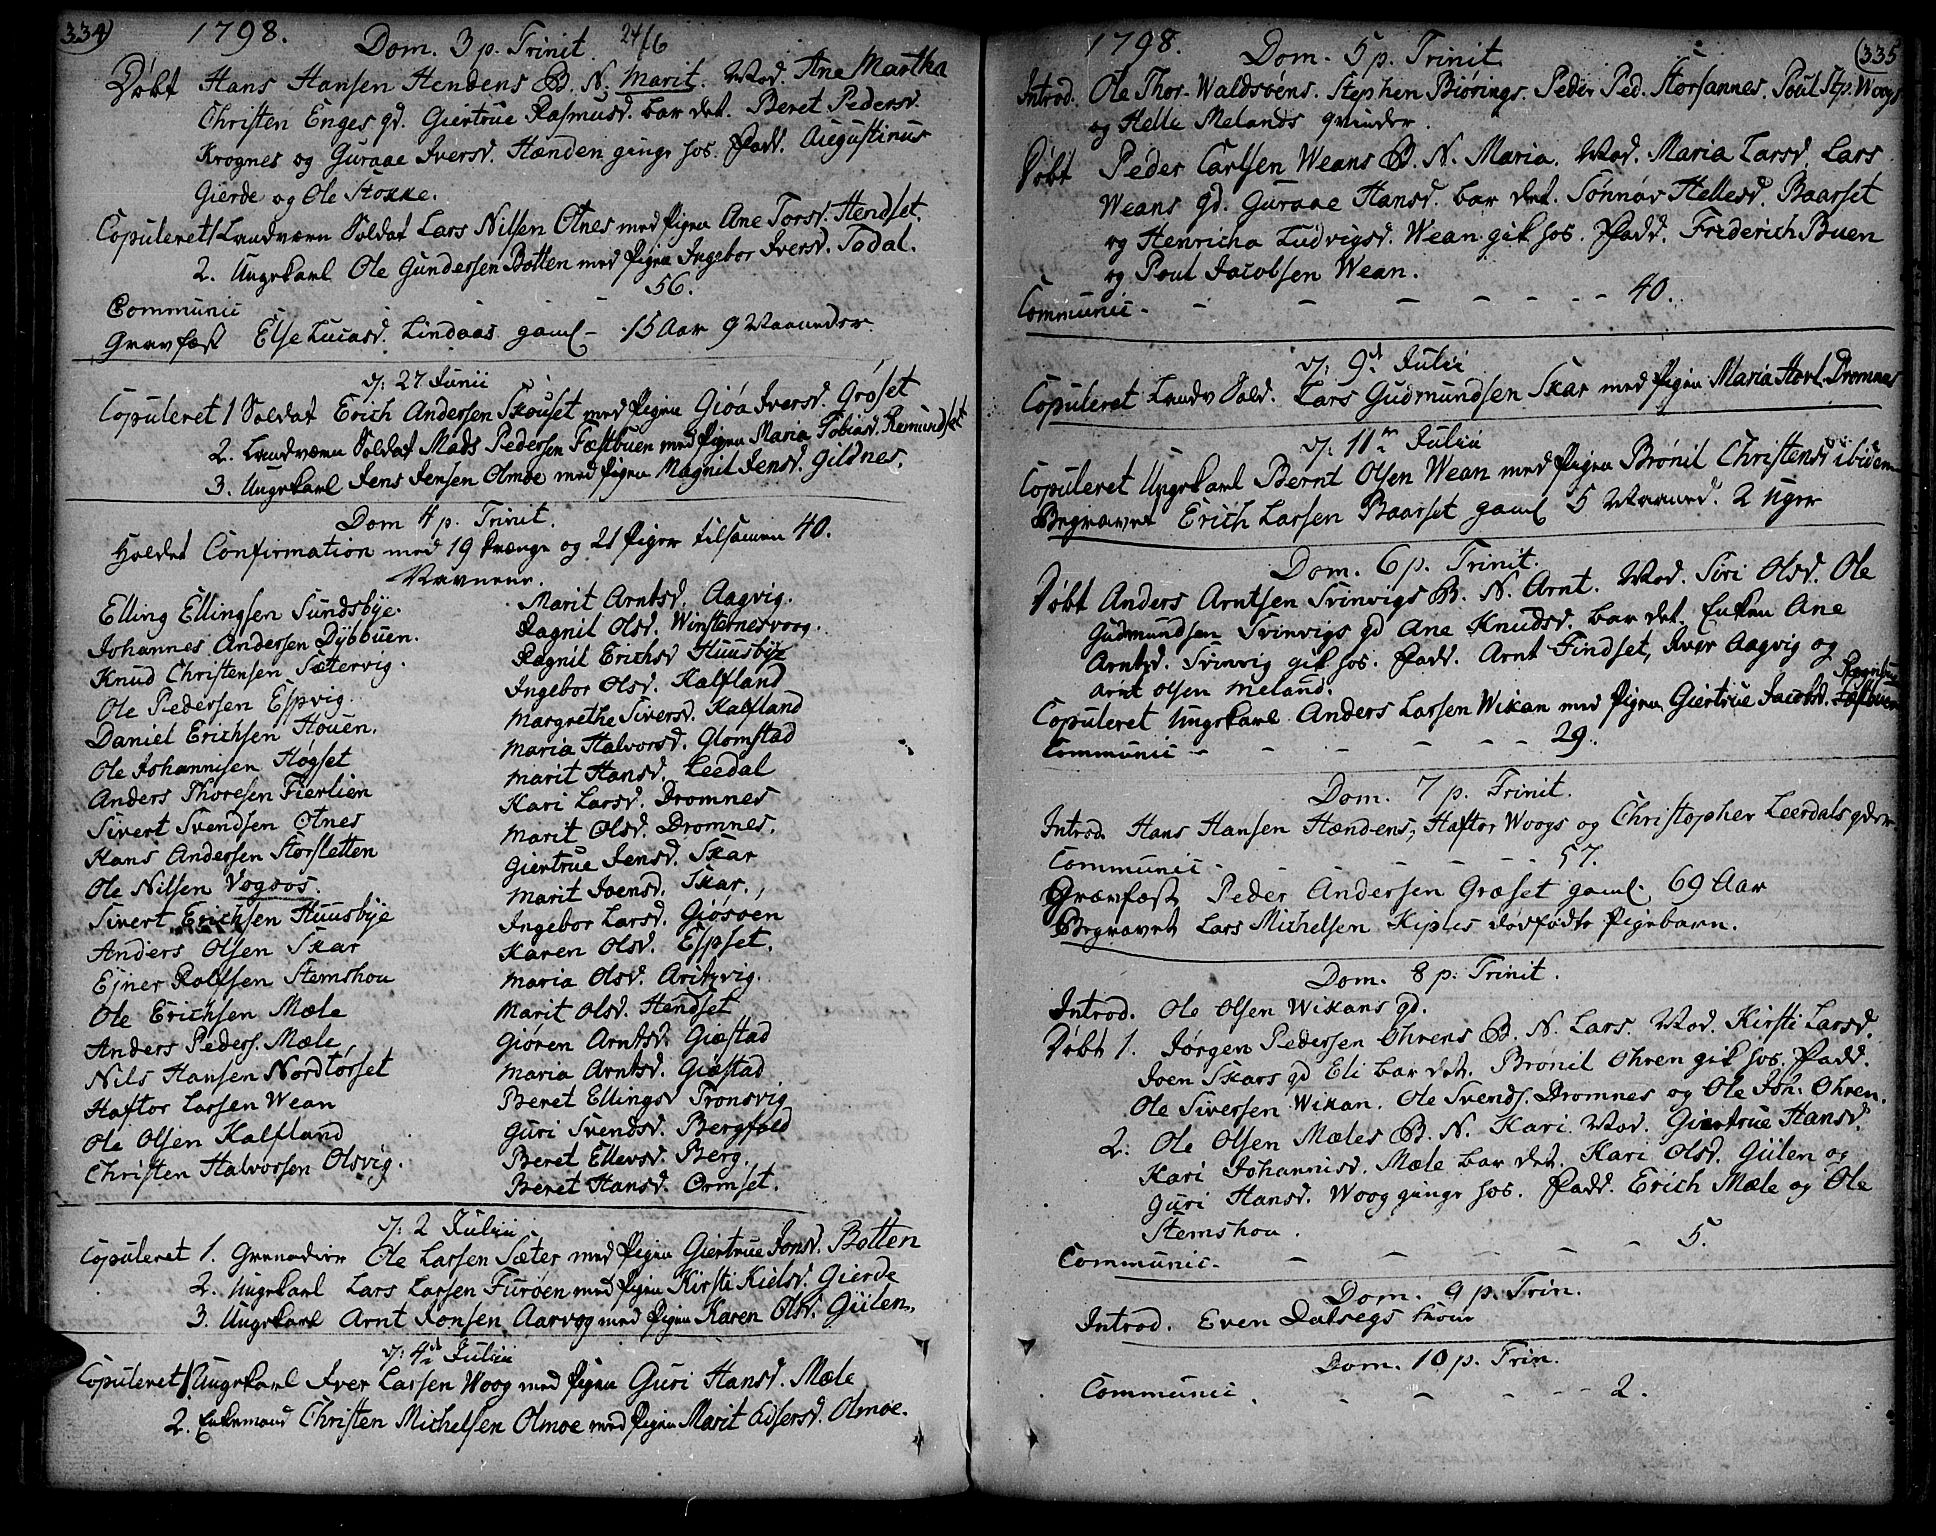 334
1798.
Dom. 3 p. Trinit. 24/6
Døbt Hans Hansen Hendens B. N. Marit. Mod. Ane Martha
Christen Enges gd. Giertrue Rasmusd. bar det. Beret Pedersd.
Krognes og Guraae Iversd. Hænden ginge hos. Fadd. Augustinus
Gierde og Ole Stokke.
Copuleret 1 Landværn Soldat Lars Nilsen Otnes med Pigen Ane Torsd. Hendset.
2. Ungekarl Ole Gundersen Botten med Pigen Ingebor Iversd. Todal.
Communic 56.
Gravfæst Else Lucasd. Lindaas gaml - 15 Aar 9 Maaneder
d: 27 Junii
Copuleret 1 Soldat Erich Andersen Skouset med Pigen Giøa Iversd. Grøset
2. Landværn Soldat Mads Pedersen Fæstbuen med Pigen Maria Tobiasd. Remundset
3. Ungekarl Jens Jensen Olmoe med Pigen Magnil Jensd. Gildnes.
Dom 4 p. Trinit.
Holdet Confirmation med 19 Drænge og 21 Piger tilsamen 40.
Navnene.
Elling Ellingsen Sundsbye.
Johannes Andersen Dybbuen.
Knud Christensen Sætervig.
Ole Pedersen Espvig.
Daniel Erichsen Houen.
Ole Johannisen Høgset
Anders Thoresen Fierlien
Sivert Svendsen Otnes
Hans Andersen Storsletten
Ole Nilsen Vogsos.
Sivert Erichsen Huusbye
Anders Olsen Skar
Ejner Rolfsen Stemshou
Ole Erichsen Mæle
Anders Peders. Mæle
Nils Hansen Nordtorset
Haftor Larsen Wean
Ole Olsen Kalfland
Christen Halvorsen Olsvig.
Marit Arntsd. Aagvig.
Ragnil Olsd. Winsternesvoog.
Ragnil Erichsd Huusbye
Ingebor Olsd. Kalfland
Margrethe Siversd. Kalfland
Maria Halvorsd. Glomstad
Marit Hansd. Leedal
Kari Larsd. Dromnes
Marit Olsd. Dromnes.
Giertrue Jensd. Skar
Marit Joensd. Skar.
Ingebor Larsd. Giøsoen
Karen Olsd. Espset.
Maria Olsd. Aritsvig.
Marit Olsd. Hendset
Giøren Arntsd. Giæstad
Maria Arntsd. Giæstad
Beret Ellingsd Tronsvig
Guri Svendsd. Bergfald
Beret Ellevsd. Berg.
Beret Hansd. Ormset.
d: 2 Julii
Copuleret 1. Grenadier Ole Larsen Sæter med Pigen Giertrue Jonsd. Botten
2. Ungekarl Lars Larsen Furøen med Pigen Kirsti Kielsd. Gierde
3. Ungekarl Arnt Jonsen Aarvog med Pigen Karen Olsd. Gülen.
d: 4de Julii
Copuleret 1 Ungekarl Iver Larsen Woog med Pigen Guri Hansd. Mæle
2. Enkemand Christen Michelsen Olmoe med Pigen Marit Edsersd. Olmoe.
335
1798.
Dom. 5 p. Trinit.
Introd. Ole Thor-Waldsøens. Stephen Biørings. Peder Ped. Storsannes. Poul Stp. Woogs
og Helle Melands qvinder.
Døbt Peder Carlsen Weans B. N. Maria. Mod. Maria Larsd. Lars
Weans gd. Guraae Hansd. bar det. Sønnøv Hellesd. Baarset
og Henricha Ludvigsd. Wean gik hos. Fadd. Friderich Buen
og Poul Jacobsen Wean.
Communic - - - - - - - 40.
d: 9de Julii
Copuleret Landv Sold. Lars Gudmundsen Skar med Pigen Maria Havl. Dromnes
d: 11te Julii
Copuleret Ungekarl Bernt Olsen Wean med Pigen Brønil Christensd. ibidem
Begravet Erich Larsen Baarset gaml 5 Maaned. 2 Uger
Dom. 6 p. Trinit.
Døbt Anders Arntsen Svinvigs B. N. Arnt. Mod. Siri Olsd. Ole
Gudmundsen Svinvigs gd Ane Knudsd. bar det. Enken Ane
Arntsd. Svinvig gik hos. Fadd. Arnt Findset, Iver Aagvig og
Arnt Olsen Meland.
Copuleret Ungekarl Anders Larsen Wikan med Pigen Giertrue Jacobsd.
Communic - - - - - - 29.
Dom. 7 p. Trinit.
Introd. Hans Hansen Hændens, Haftor Woogs og Christopher Leerdals qder
Communic - - - - 57.
Gravfæst Peder Andersen Græset gaml. 69 Aar
Begravet Lars Michelsen Kiples dødfødte Pigebarn.
Dom. 8 p. Trinit.
Introd. Ole Olsen Wikans gd.
Døbt 1. Jørgen Pedersen Ohrens B. N. Lars. Mod. Kirsti Larsd.
Joen Skars gd Eli bar det. Brønil Ohren gik hos. Fadd.
Ole Siversen Wikan. Ole Svends. Dromnes og Ole Joh. Ohren.
2. Ole Olsen Mæles B. N. Kari. Mod. Giertrue Hansd.
Kari Johannisd. Mæle bar det. Kari Olsd. Gülen og
Guri Hansd. Woog ginge hos. Fadd. Erich Mæle og Ole
Stemshou.
Communic. - - - - - 5.
Dom. 9 p. Trin.
Introd. Even Dalsegs kone
Dom. 10 p. Trin.
Communic. - - - - 2.